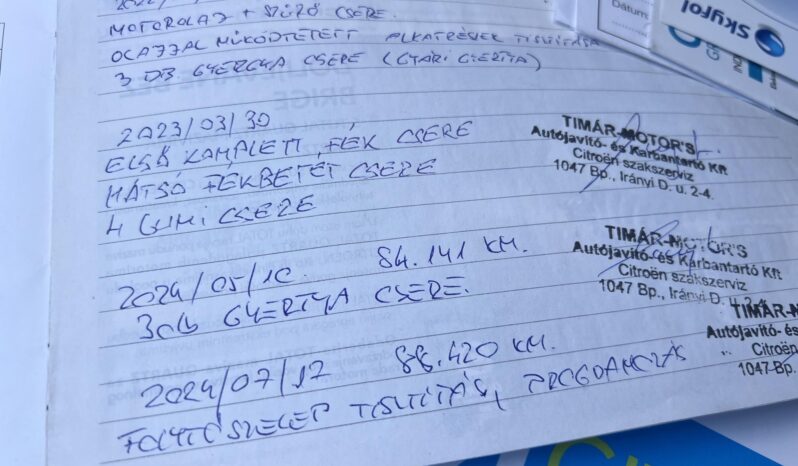 MOTOROLAJ + SZŰRŐ CSERE.
OLAJJAL MŰKÖDTETETT ALKATRÉSZEK TISZTÍTÁSA
3 DB GYERTYA CSERE (GYÁRI GYERTYA)
2023/03/30
ELSŐ KOMPLETT FÉK CSERE
HÁTSÓ FÉKBETÉT CSERE
4 GUMI CSERE
TIMÁR-MOTOR'S
Autójavító- és Karbantartó Kft
Citroën szakszerviz
1047 Bp., Irányi D. u. 2-4.
2024/05/10 84.141 KM.
3db GYERTYA CSERE.
TIMÁR-MOTOR'S
Autójavító- és Karbantartó Kft
Citroën szakszerviz
1047 Bp., Irányi D.
2024/07/17 88.420 KM.
FOJTÓSZELEP TISZTÍTÁS,
TIMÁR-M
Autójavító- és
Citroën
1047 Bp.
Dátum
Skyrol